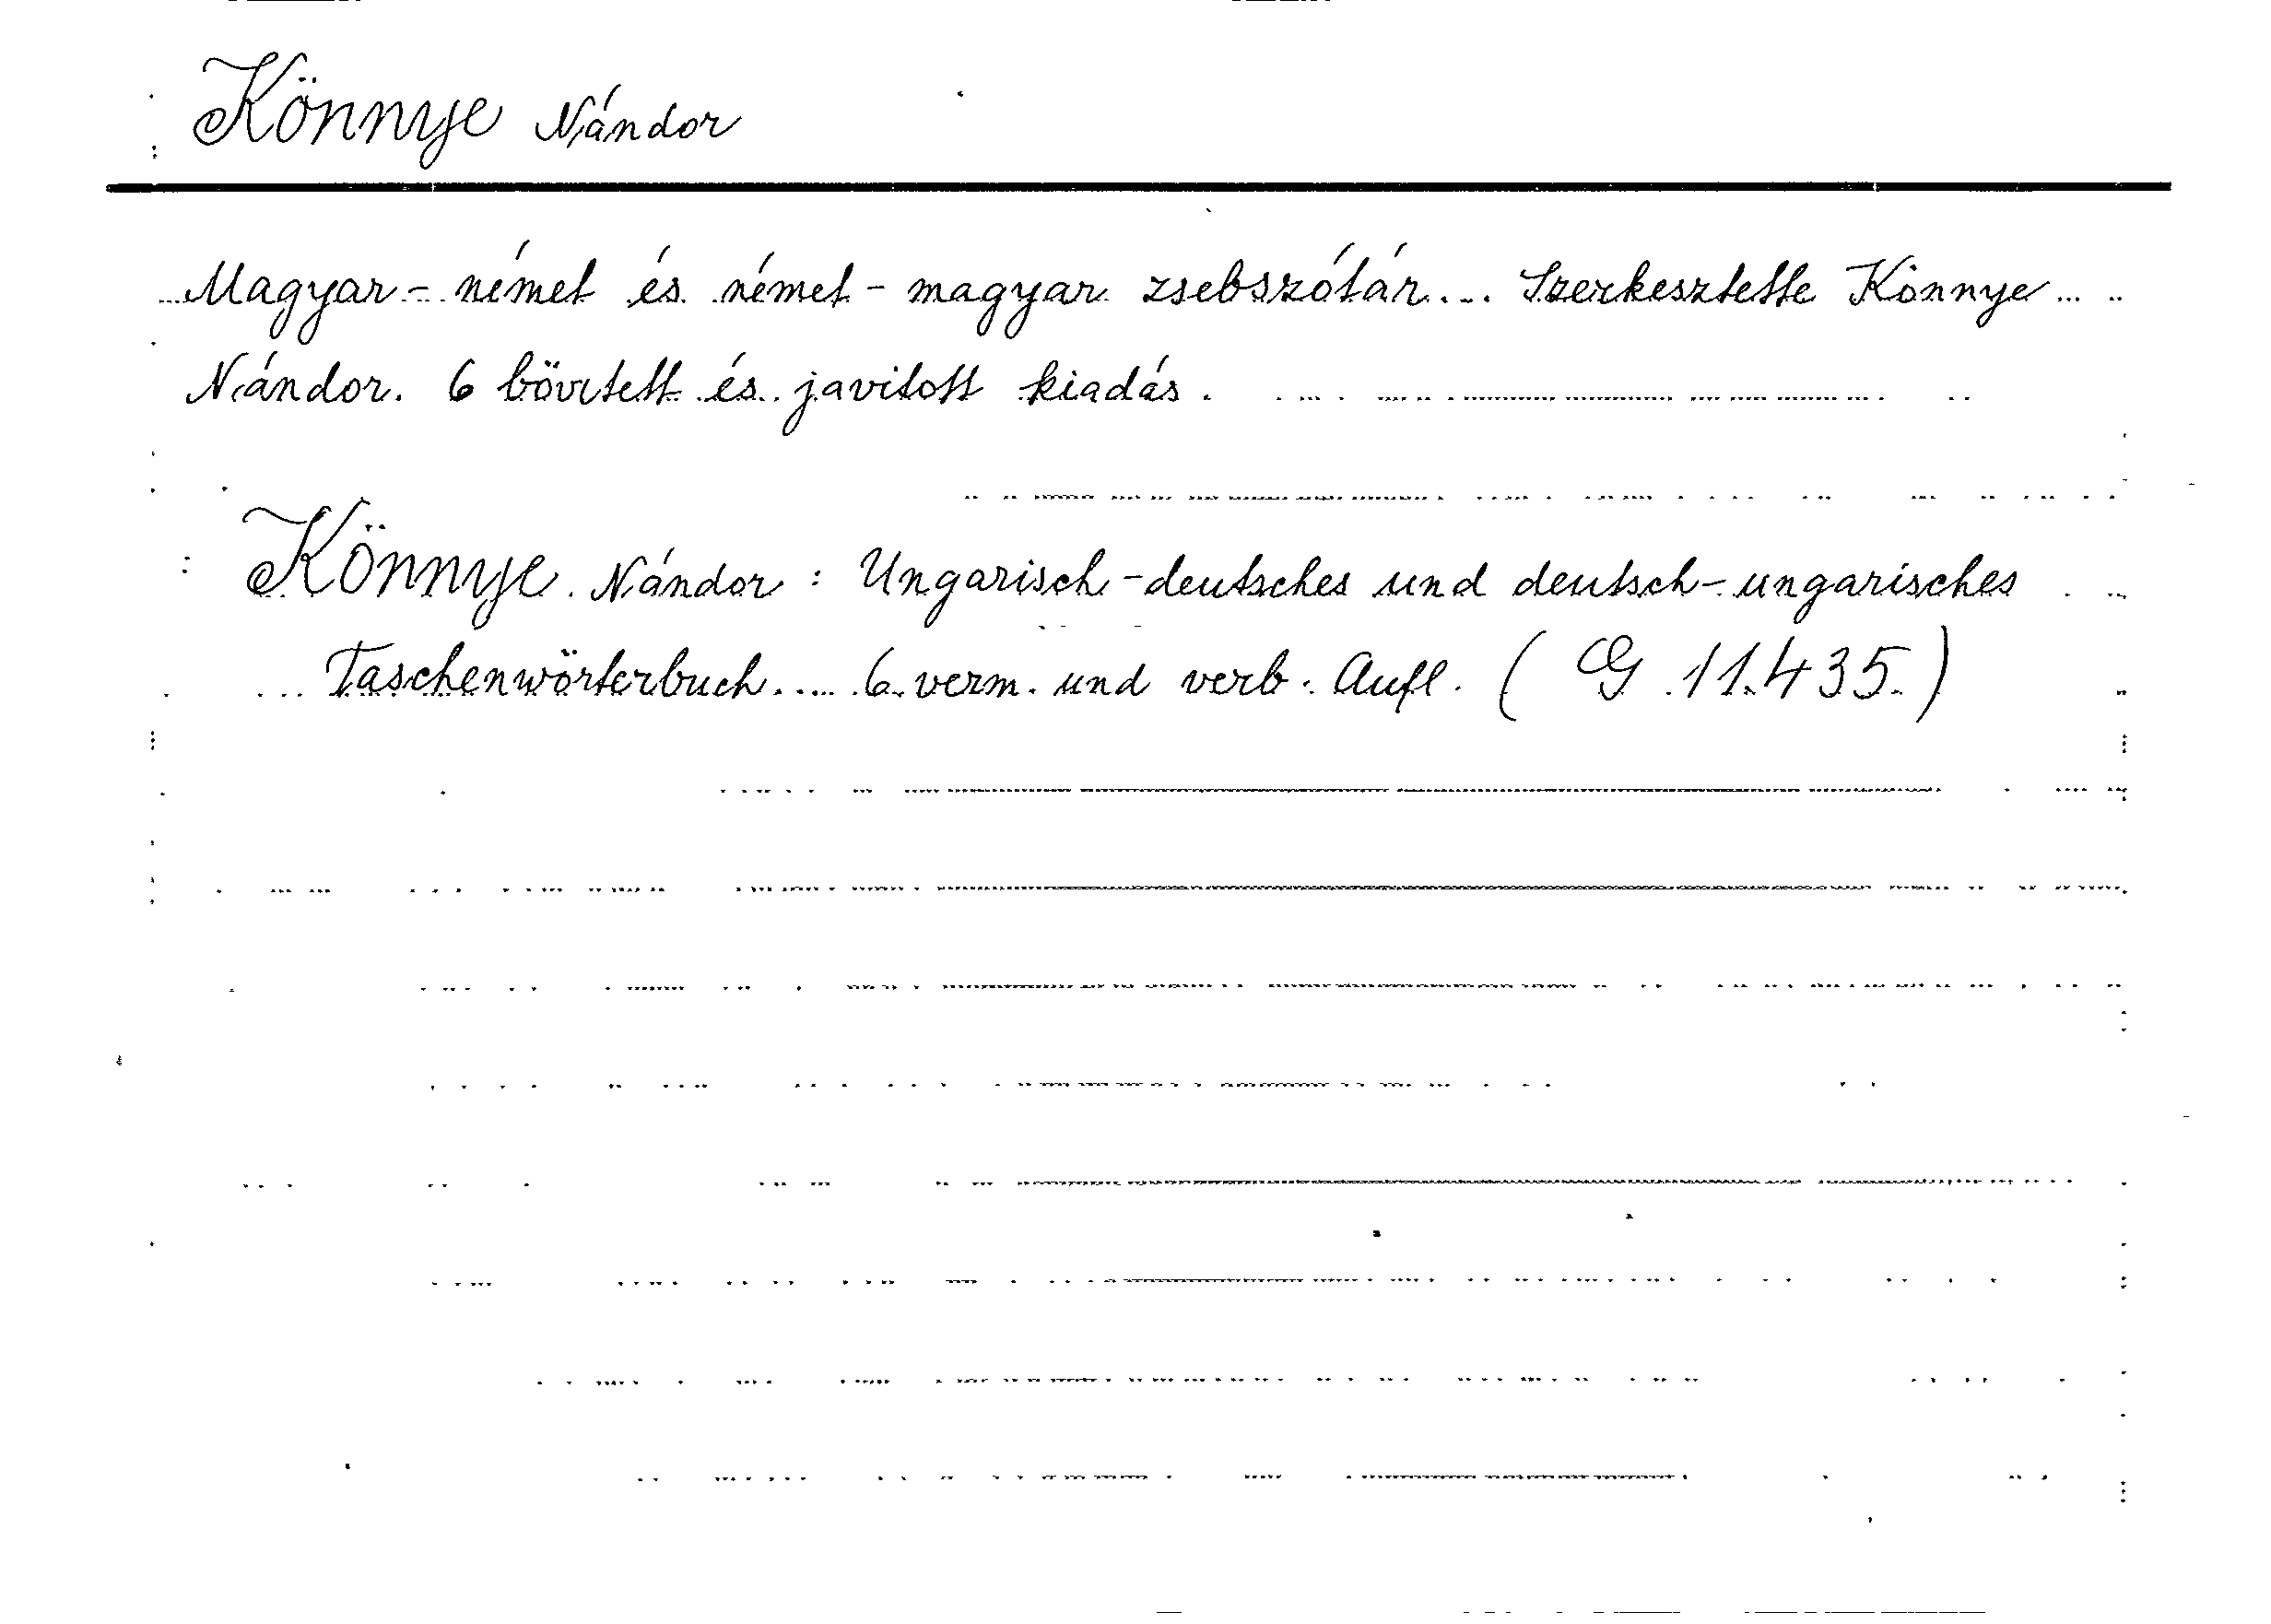 Könnye Nándor
Magyar - német és német - magyar zsebszótár... Szerkesztette Könnye
Nándor. 6 bövitett és javitott kiadás.
Könnye Nándor : Ungarisch - deutsches und deutsch - ungarisches
Taschenwörterbuch.... 6. verm. und verb. Aufl. ( G 11.435.)